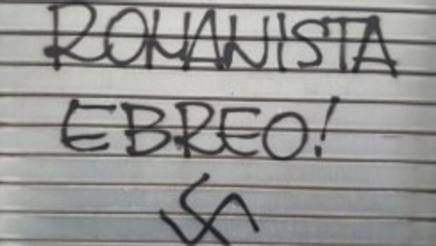 ROMANISTA
EBREO!